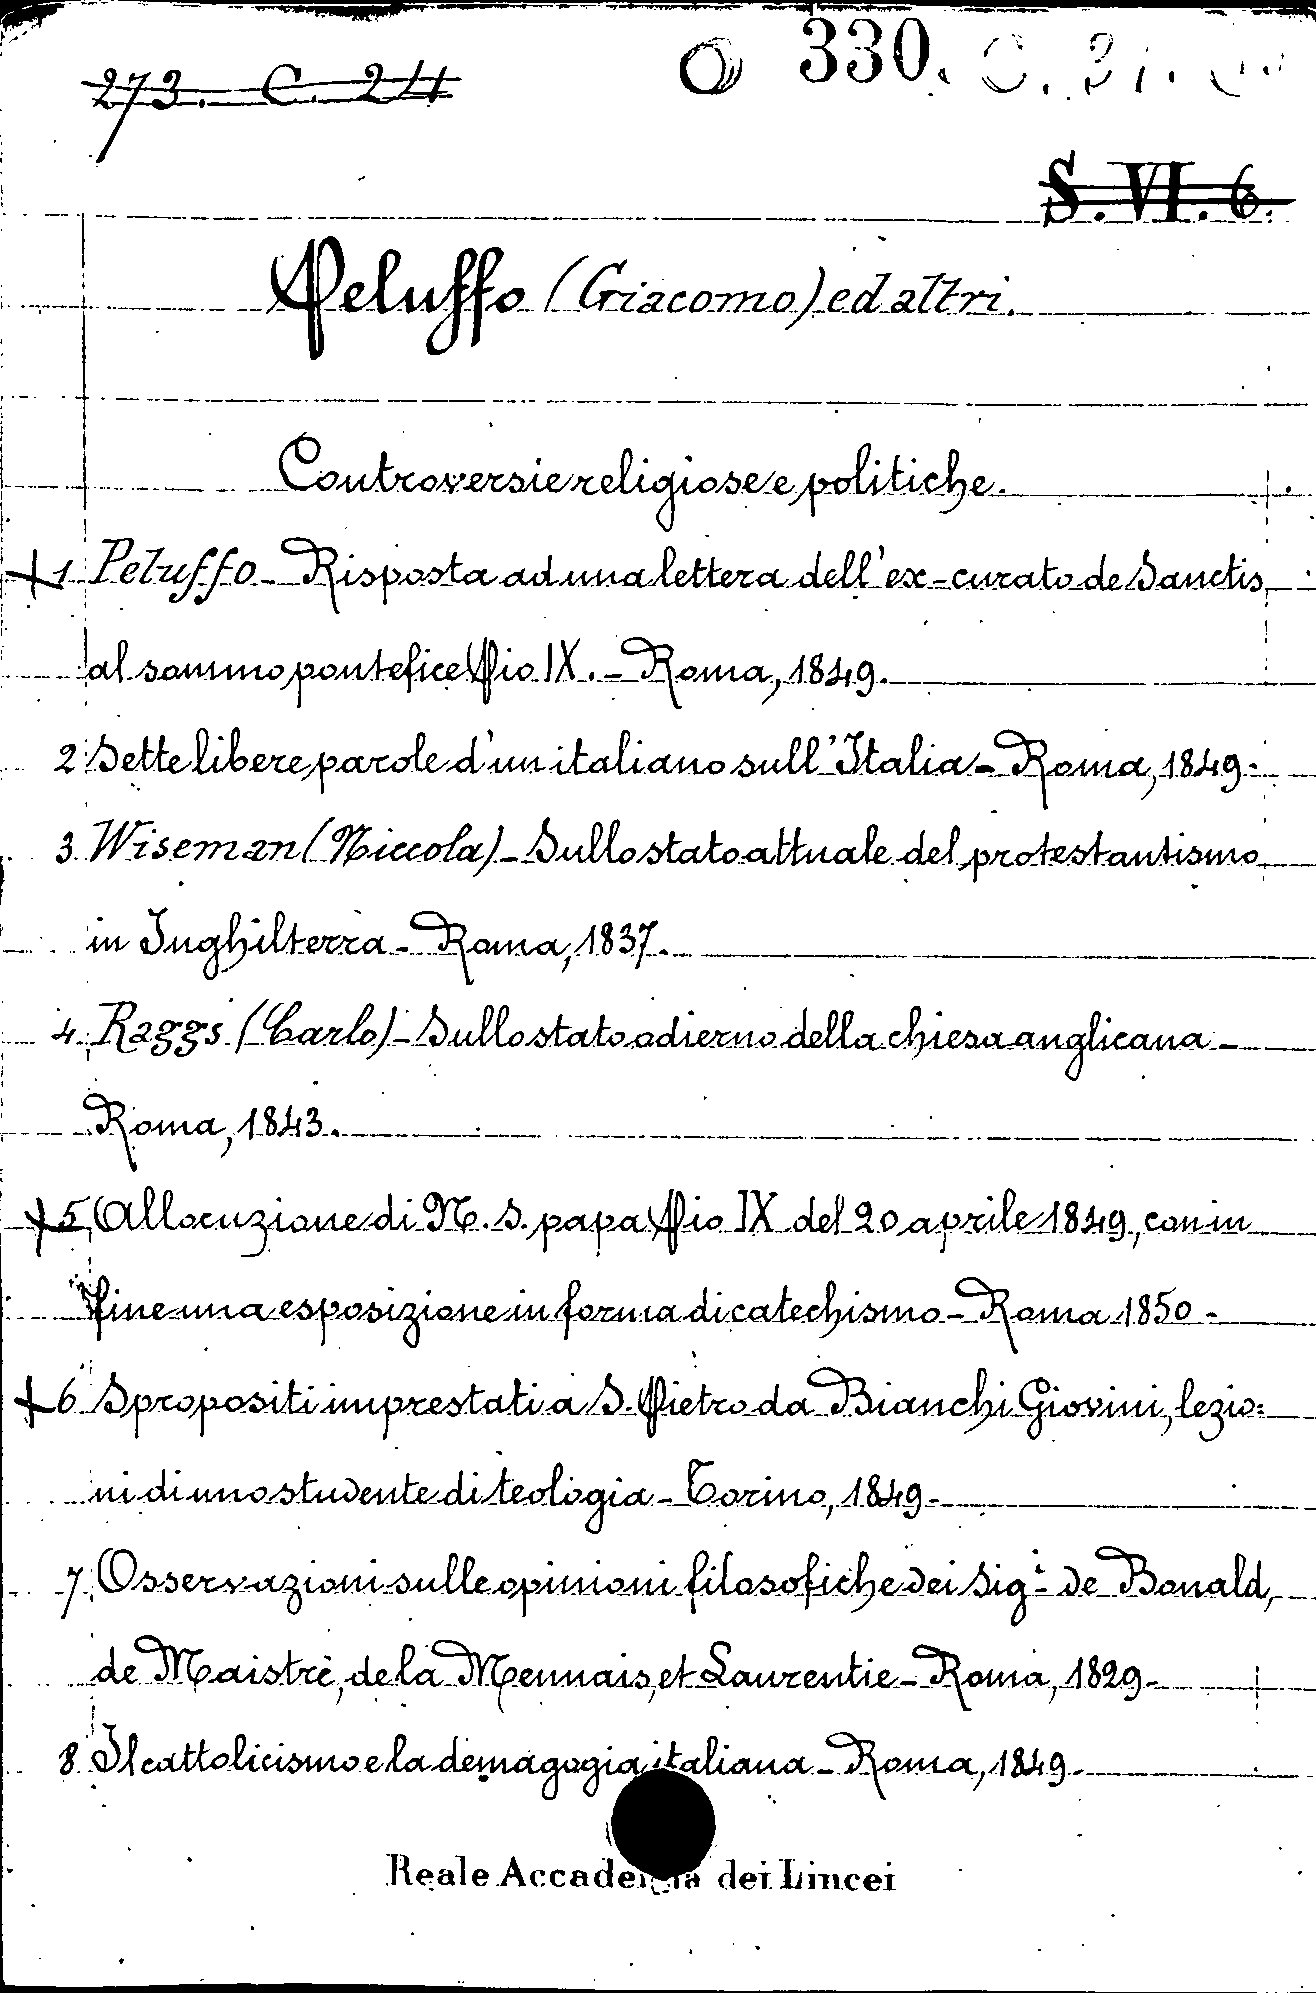 273. C. 24
330. C. 31.
S. VI. 6.
Peluffo (Giacomo) ed altri.
Controversie religiose e politiche.
+1 Peluffo - Risposta ad una lettera dell'ex-curato de Sanctis
al sommo pontefice Pio IX. - Roma, 1849.
2 Sette libere parole d'un italiano sull'Italia - Roma, 1849.
3 Wiseman (Niccola) - Sullo stato attuale del protestantismo
in Inghilterra - Roma, 1837.
4 Raggi (Carlo) - Sullo stato odierno della chiesa anglicana -
Roma, 1843.
+5 Allocuzione di N. S. papa Pio IX del 20 aprile 1849, con in
fine una esposizione in forma di catechismo - Roma 1850 -
+6 Spropositi imprestati a S. Pietro da Bianchi Giovini, lezio=
ni di uno studente di teologia - Torino, 1849 -
7 Osservazioni sulle opinioni filosofiche dei Sig.i de Bonald,
de Maistre, de la Mennais, et Laurentie - Roma, 1829 -
8 Il cattolicismo e la demagogia italiana - Roma, 1849 -
Reale Accademia dei Lincei